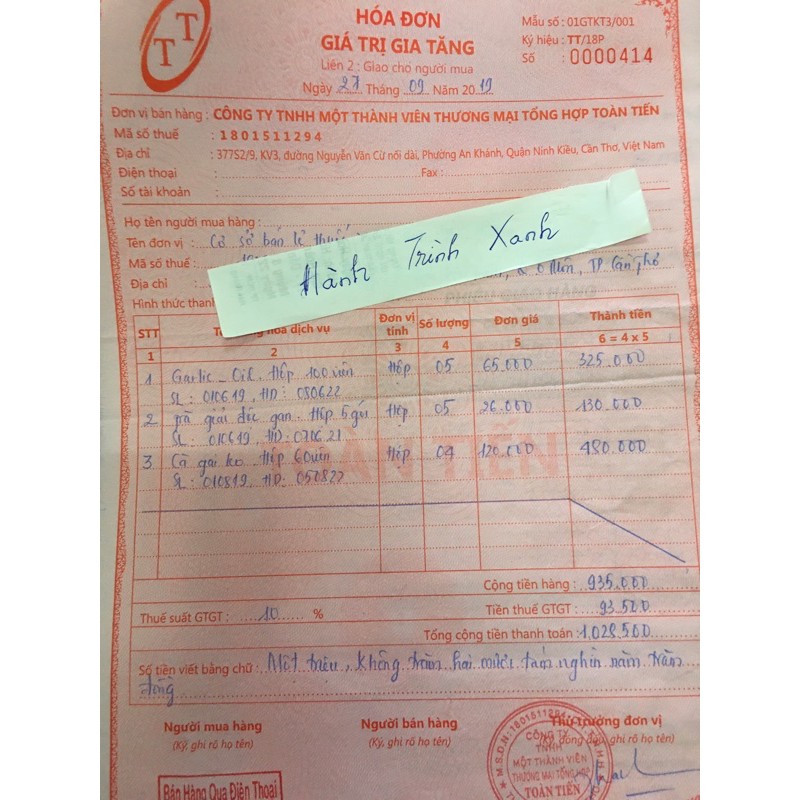 TT
HÓA ĐƠN
GIÁ TRỊ GIA TĂNG
Liên 2 : Giao cho người mua
Ngày 27 Tháng 09 Năm 2019
Mẫu số : 01GTKT3/001
Ký hiệu : TT/18P
Số : 0000414
Đơn vị bán hàng : CÔNG TY TNHH MỘT THÀNH VIÊN THƯƠNG MẠI TỔNG HỢP TOÀN TIẾN
Mã số thuế : 1801511294
Địa chỉ : 377S2/9, KV3, đường Nguyễn Văn Cừ nối dài, Phường An Khánh, Quận Ninh Kiều, Cần Thơ, Việt Nam
Điện thoại : Fax :
Số tài khoản :
Họ tên người mua hàng :
Tên đơn vị : Cơ sở bán lẻ thuốc
Hành Trình Xanh
Mã số thuế :
Địa chỉ : Q. Ô Môn, TP. Cần Thơ
Hình thức thanh
STT hóa dịch vụ Đơn vị tính Số lượng Đơn giá Thành tiền
1 2 3 4 5 6 = 4 x 5
1 Garlic - Oil. Hộp 100 viên Hộp 05 65.000 325.000
SL : 010619, HD : 080622
2 Trà giải độc gan. Hộp 5 gói Hộp 05 26.000 130.000
SL : 010619, HD : 070621
3 Cà gai leo Hộp 60 viên Hộp 04 120.000 480.000
SL : 010819, HD : 050822
TOÀN TIẾN
Cộng tiền hàng : 935.000
Thuế suất GTGT : 10 % Tiền thuế GTGT : 93.500
Tổng cộng tiền thanh toán : 1.028.500
Số tiền viết bằng chữ : Một triệu, không trăm hai mươi tám nghìn năm trăm
đồng
Người mua hàng Người bán hàng Thủ trưởng đơn vị
(Ký, ghi rõ họ tên) (Ký, ghi rõ họ tên) (Ký, đóng dấu, ghi rõ họ tên)
M.S.D.N: 1801511294
CÔNG TY
TNHH
MỘT THÀNH VIÊN
THƯƠNG MẠI TỔNG HỢP
TOÀN TIẾN
Bán Hàng Qua Điện Thoại